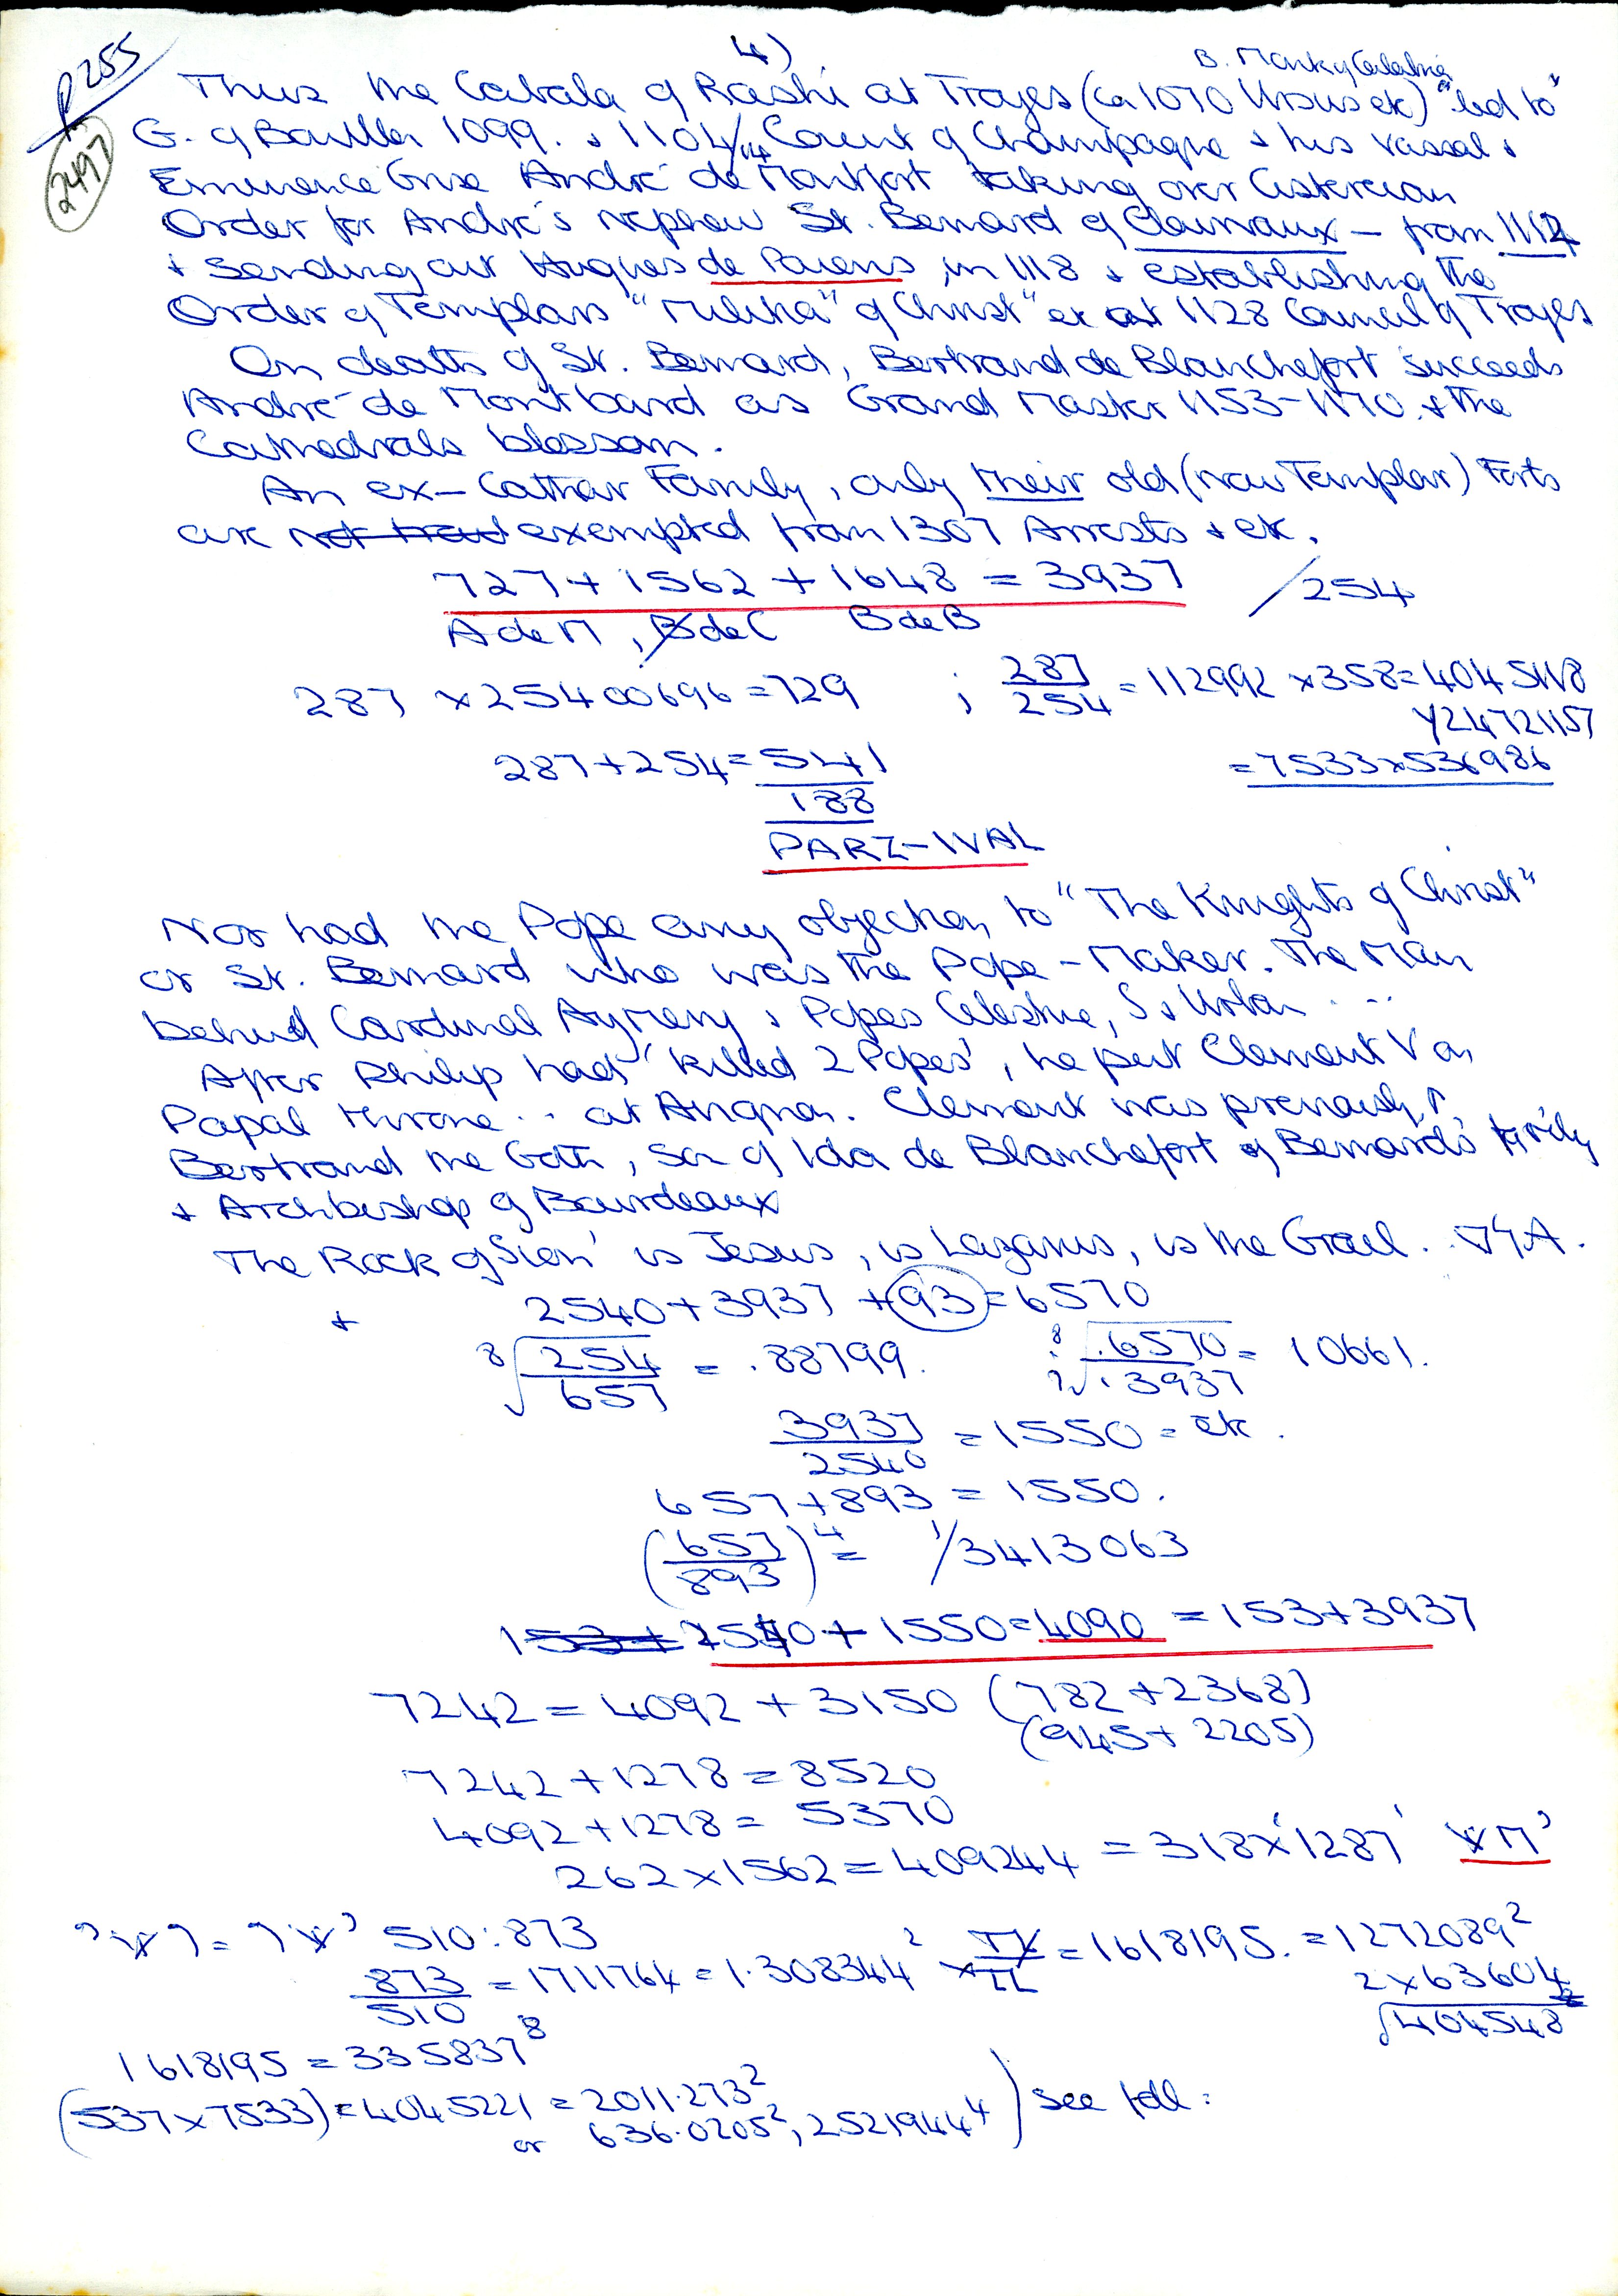 4)
p255
2497
B. Monk
Thus the Cabala of Rashi at Troyes (ca 1070 Ursus etc) "led to"
G. of Bouillon 1099. & 1104/14 Count of Champagne & his vassal &
Eminence Grise André de Montfort taking over Cistercian
Order for André's nephew St. Bernard of Clairvaux – from 1112
& sending out Hugues de Paiens in 1118 & establishing the
Order of Templars "Militia" of Christ" etc at 1128 Council of Troyes
On death of St. Bernard, Bertrand de Blanchefort succeeds
André de Montbard as Grand Master 1153-1170. & the
Cathedrals blossom.
An ex-Cathar Family, only their old (now Templar) Forts
are exempted from 1307 Arrests & etc.
727 + 1562 + 1648 = 3937 /254
A de M , B de C B de B
287 x 25400696 = 729 ; 287/254 = 112992 x 358 = 4045118
√24721157
287 + 254 = 541 = 7533 x 536986
188
PARZ-IVAL
Nor had the Pope any objection to "The Knights of Christ"
or St. Bernard who was the Pope-Maker. The Man
behind Cardinal Aymery & Popes Celestine, S & Urban ...
After Philip had 'killed 2 Popes', he put Clement V on
Papal throne .. at Avignon. Clement was previously
Bertrand the Goth, son of Ida de Blanchefort of Bernard's family
& Archbishop of Bourdeaux
'The Rock of Sion' is Jesus, is Lazarus, is the Grael.
+ 2540 + 3937 + 93 = 6570
8√254/657 = .88799. 8√.6570/.3937 = 10661.
3937/2540 = 1550 = etc.
657 + 893 = 1550.
(657/893)⁴ = 1/3413063
2540 + 1550 = 4090 = 153 + 3937
7242 = 4092 + 3150 (782 + 2368)
(945 + 2205)
7242 + 1278 = 8520
4092 + 1278 = 5370
262 x 1562 = 409244 = 318 x '1287'
510 : 873
873/510 = 1711764 = 1.308344² = 1618195. = 1272089²
2 x 63604
√404548
1618195 = 335837⁸
(537 x 7533) = 4045221 = 2011.273²
or 636.0205², 2521944⁴ ) see foll: